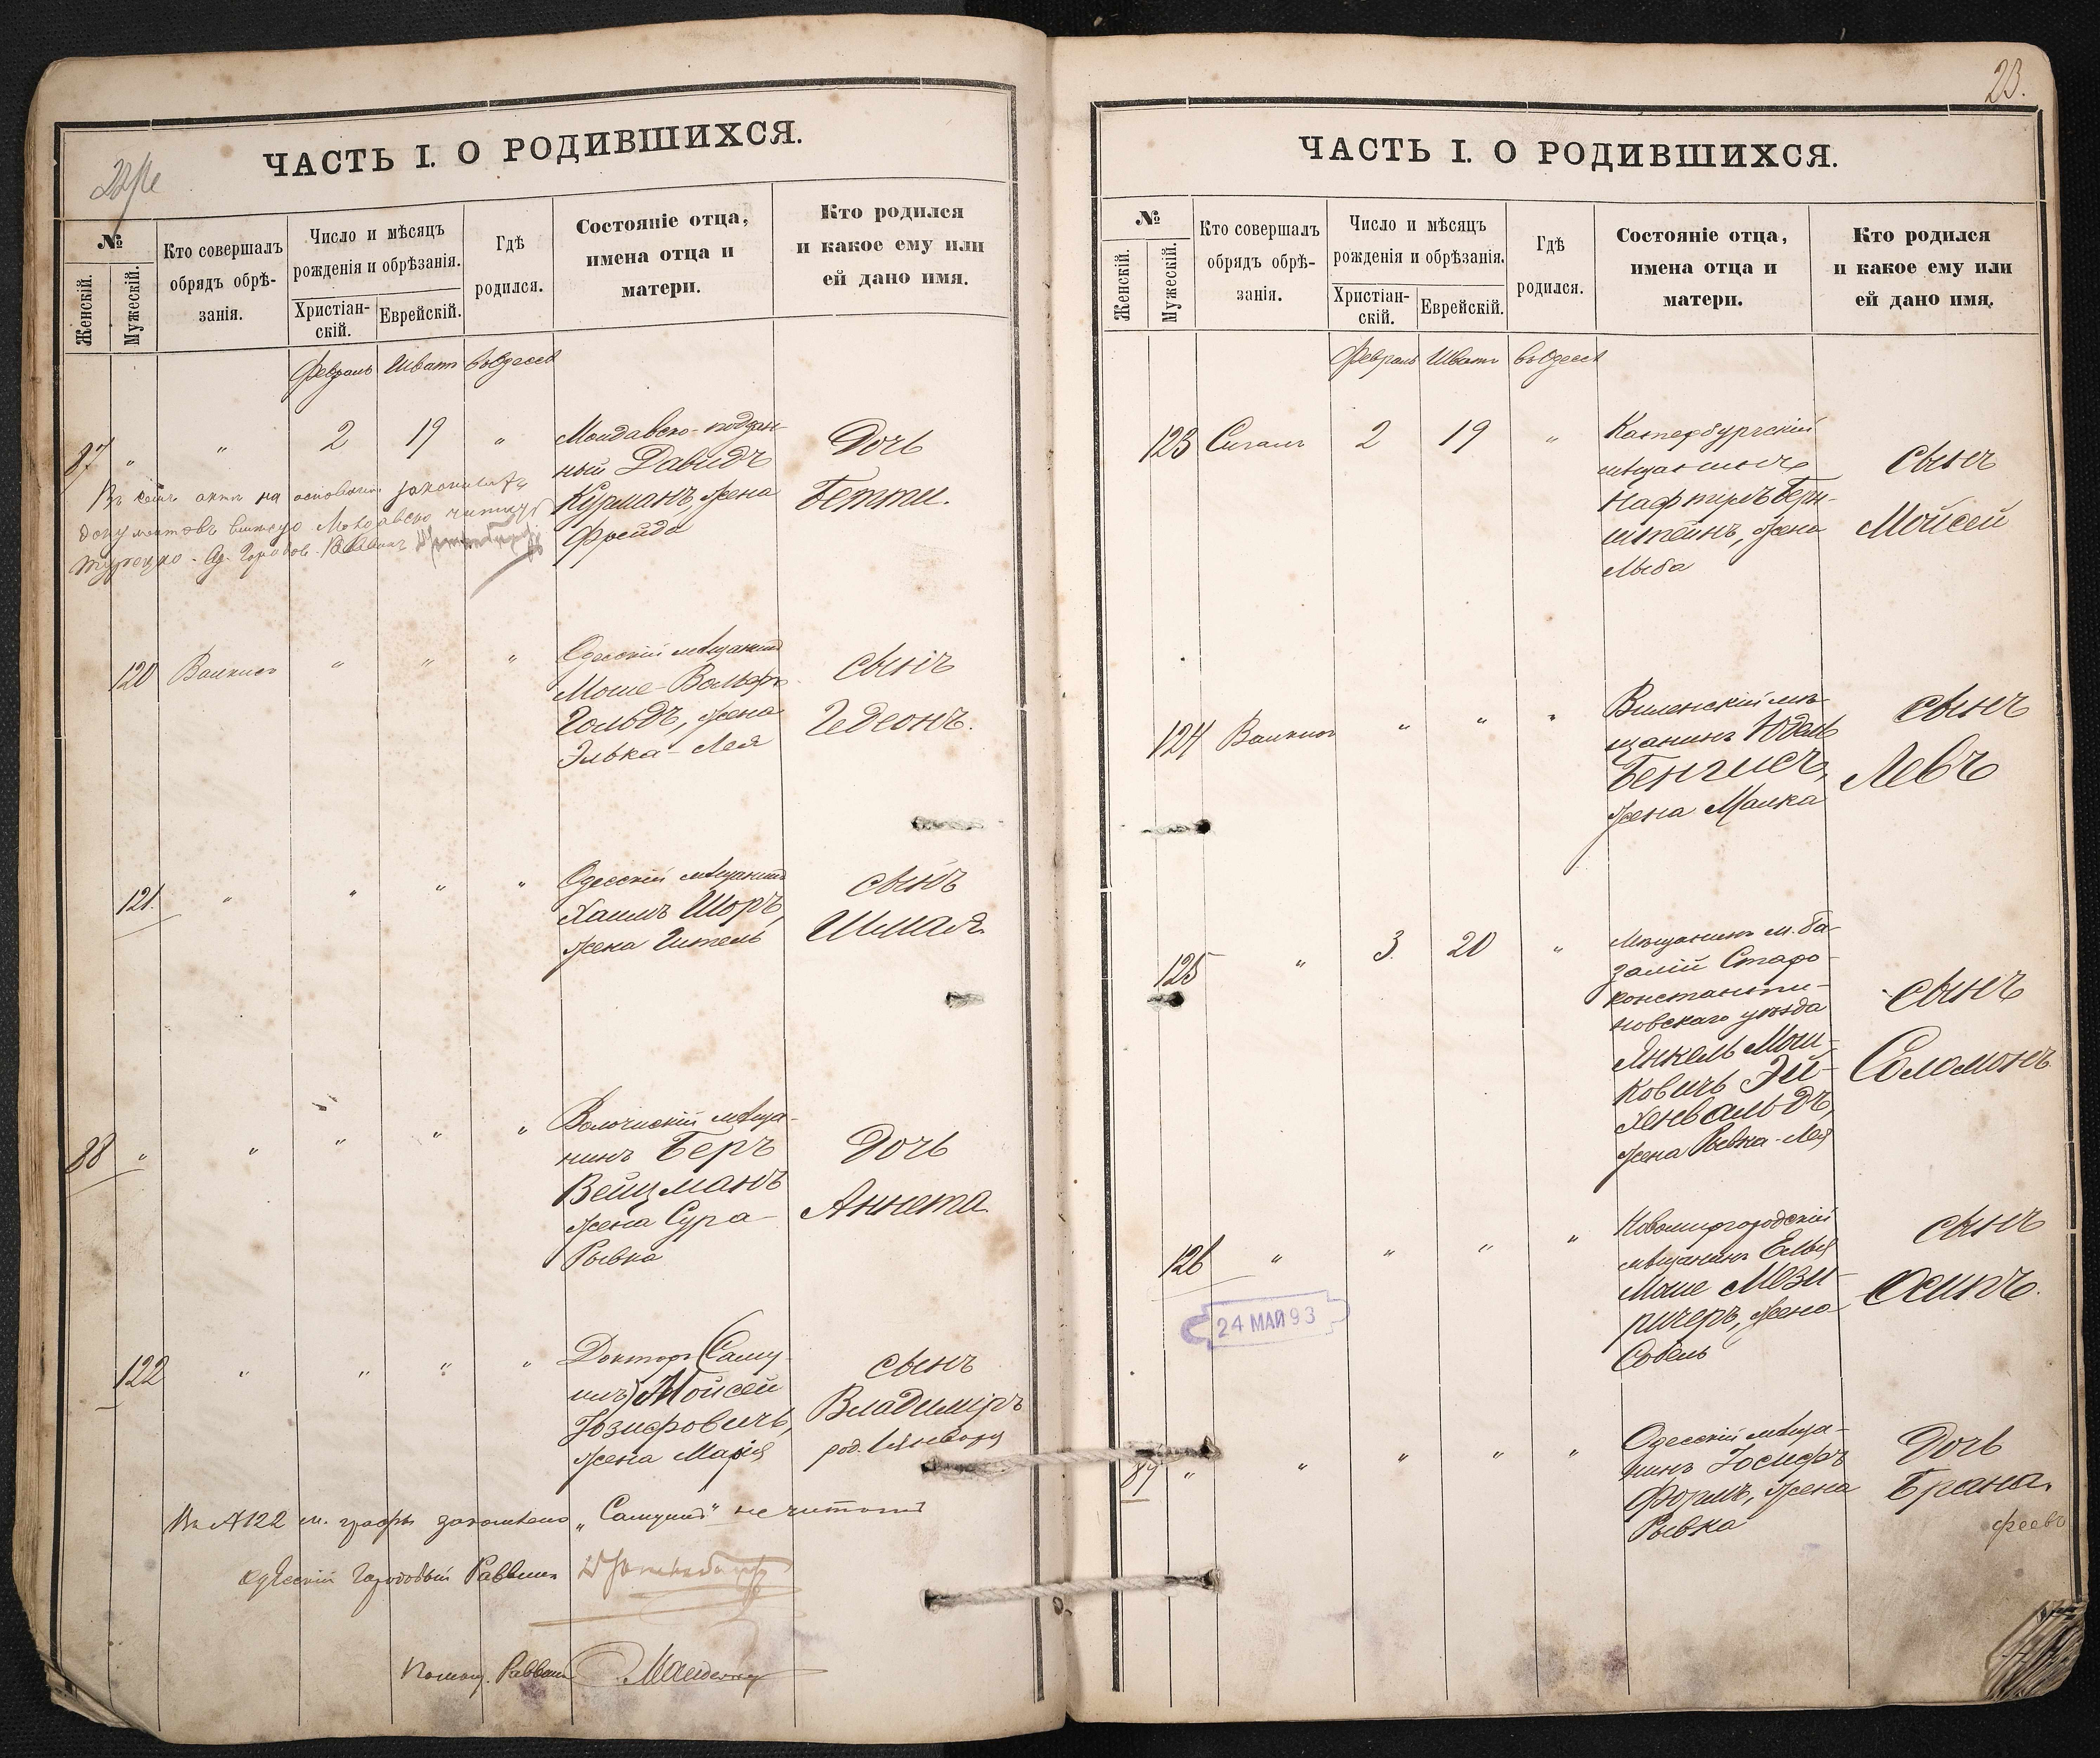 ЧАСТЬ I. О РОДИВШИХСЯ.
№
Женскій.
Мужескій.
Кто совершалъ
обрядъ обрѣ-
занія.
Число и мѣсяцъ
рожденія и обрѣзанія.
Христіан-
скій.
Еврейскій.
Гдѣ
родился.
Состояніе отца,
имена отца и
матери.
Кто родился
и какое ему или
ей дано имя.
Февраль Шватъ въ Одессѣ
87 " " 2 19 "
Молдавско-поддан-
ный Давидъ
Курманъ, жена
Фрейда
Дочь
Бетти.
Въ семъ актѣ на основаніи
документовъ вмѣсто Молдавско читать
Турецко-
120 Валкисъ " " "
Одесскій мѣщанинъ
Моше-Вольфъ
Гольдъ, жена
Элька-Лея
сынъ
Гедеонъ.
121. " " " "
Одесскій мѣщанинъ
Хаимъ Шоръ,
жена Гитель
сынъ
Шмая
88 " " " " "
Волочискій мѣща-
нинъ Беръ
Вейцманъ
жена Сура-
Рывка
Дочь
Аннета
122 " " " "
Докторъ (Саму-
илъ) Мойсей
Іозифовичъ,
жена Марія
сынъ
Владиміръ
род. 1 Января
Въ № 122 м. графы
не читать
Одесскій Городовой Раввинъ
Помощ. Раввина
23.
ЧАСТЬ I. О РОДИВШИХСЯ.
№
Женскій.
Мужескій.
Кто совершалъ
обрядъ обрѣ-
занія.
Число и мѣсяцъ
рожденія и обрѣзанія.
Христіан-
скій.
Еврейскій.
Гдѣ
родился.
Состояніе отца,
имена отца и
матери.
Кто родился
и какое ему или
ей дано имя.
Февраль Шватъ въ Одессѣ
123 Сигалъ 2 19 "
Катербургскій
мѣщанинъ
Нафтулъ Берн-
штейнъ, жена
Лыба
сынъ
Мойсей
124 Валкисъ " " "
Виленскій мѣ-
щанинъ Юдель
Бенгисъ,
жена Малка
сынъ
Левъ
125 " 3. 20 "
Мѣщанинъ м. Ба-
залій Старо-
константи-
новскаго уѣзда
Янкель Мош-
ковичъ Эй-
хенвальдъ,
жена Ривка-Лея
сынъ
Соломонъ
126 " " " "
Новомиргородскій
мѣщанинъ Елья
Моше Мези-
ричеръ, жена
Собель
сынъ
Осипъ.
24 МАЙ 93
89 " " " " "
Одесскій мѣща-
нинъ Іосифъ
Формъ, жена
Рывка
Дочь
Брана.